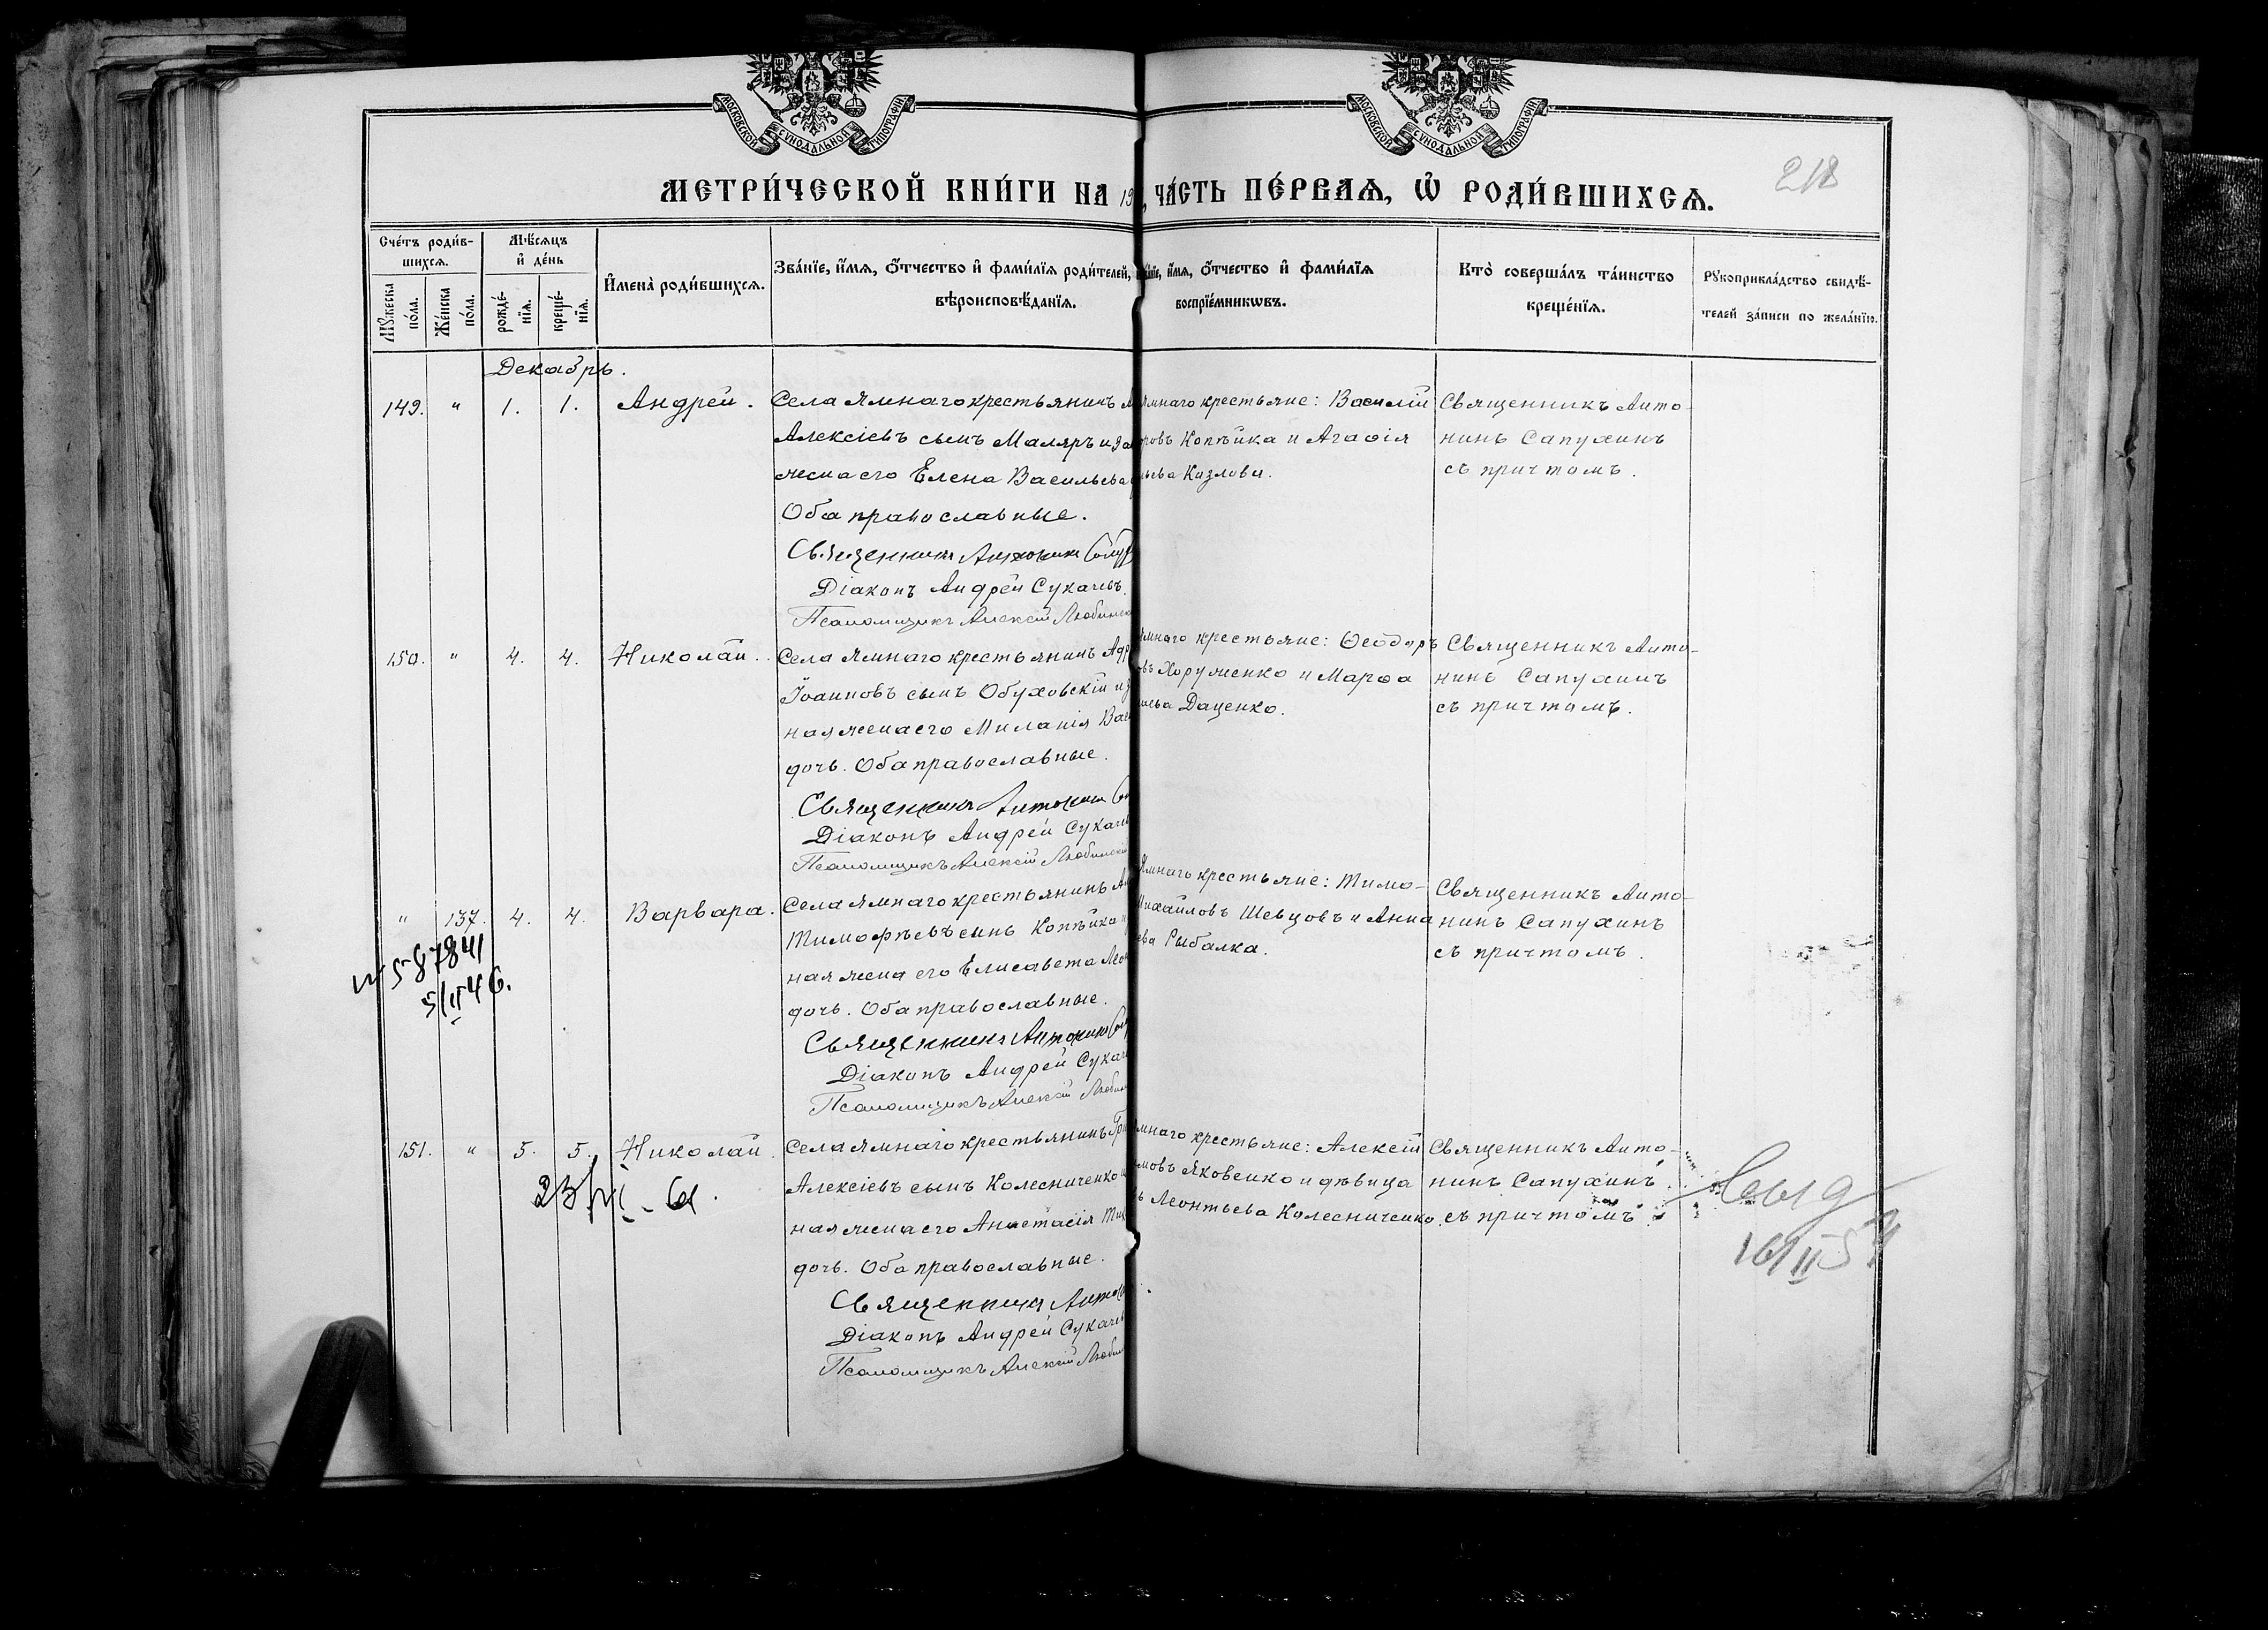 МОСКОВСКОЙ СѴНОДАЛЬНОЙ ТИПОГРАФІИ
МОСКОВСКОЙ СѴНОДАЛЬНОЙ ТИПОГРАФІИ
218
МЕТРИ́ЧЕСКОЙ КНИ́ГИ НА 19 , ЧА́СТЬ ПЕ́РВАѦ, Ѽ РОДИ́ВШИХСѦ.
Сче́тъ роди́в-
шихсѧ.
Мѣ́сѧцъ
и҆ де́нь
Мꙋ́жеска
по́ла.
Же́нска
по́ла.
рожде́-
нїѧ.
креще́-
нїѧ.
И҆мена̀ роди́вшихсѧ.
Зва́нїе, и҆́мѧ, ѻ҆́тчество и҆ фами́лїѧ роди́телей,
вѣроисповѣ́данїѧ.
и҆́мѧ, ѻ҆́тчество и҆ фами́лїѧ
воспрїе́мникѡвъ.
Кто̀ соверша́лъ та́инство
креще́нїѧ.
Рꙋкоприкла́дство свидѣ́-
телей за́писи по жела́нїю.
Декабрь.
149. " 1. 1. Андрей.
Села Ямнаго крестьянинъ
Алексіевъ сынъ Маляръ и за
жена его Елена Васильева
Оба православные.
Священникъ Антонинъ
Діаконъ Андрей Сукачевъ.
Псаломщикъ Алексій
Ямнаго крестьяне: Василій
ровъ Копѣйка и Агафія
ьева Козлова.
Священникъ Анто-
нинъ Сапухинъ
съ причтомъ.
150. " 4. 4. Николай.
Села Ямнаго крестьянинъ
Іоанновъ сынъ Обуховскій и
ная жена его Миланія Ва
дочь. Оба православные.
Священникъ Антонинъ
Діаконъ Андрей Сукачев
Псаломщикъ Алексій
Ямнаго крестьяне: Ѳеодоръ
овъ Хоруженко и Марѳа
Даценко.
Священникъ Анто-
нинъ Сапухинъ
съ причтомъ.
" 137. 4. 4. Варвара.
№ 587841
5/II 46.
Села Ямнаго крестьянинъ
Тимофѣевъ сынъ Копѣйка
ная жена его Елисавета Лео
дочь. Оба православные.
Священникъ Антонинъ
Діаконъ Андрей Сукач
Псаломщикъ Алексій
Ямнаго крестьяне: Тимо-
Михайловъ Шевцовъ и Анна
ева Рыбалка.
Священникъ Анто-
нинъ Сапухинъ
съ причтомъ.
151. " 5. 5. Николай.
Села Ямнаго крестьянинъ Гри
Алексіевъ сынъ Колесниченко
ная жена его Анастасія
дочь. Оба православные.
Священникъ Анто
Діаконъ Андрей Сукачев
Псаломщикъ Алексій
Ямнаго крестьяне: Алексій
мовъ Яковенко и дѣвица
Леонтьева Колесниченко.
Священникъ Анто-
нинъ Сапухинъ
съ причтомъ.